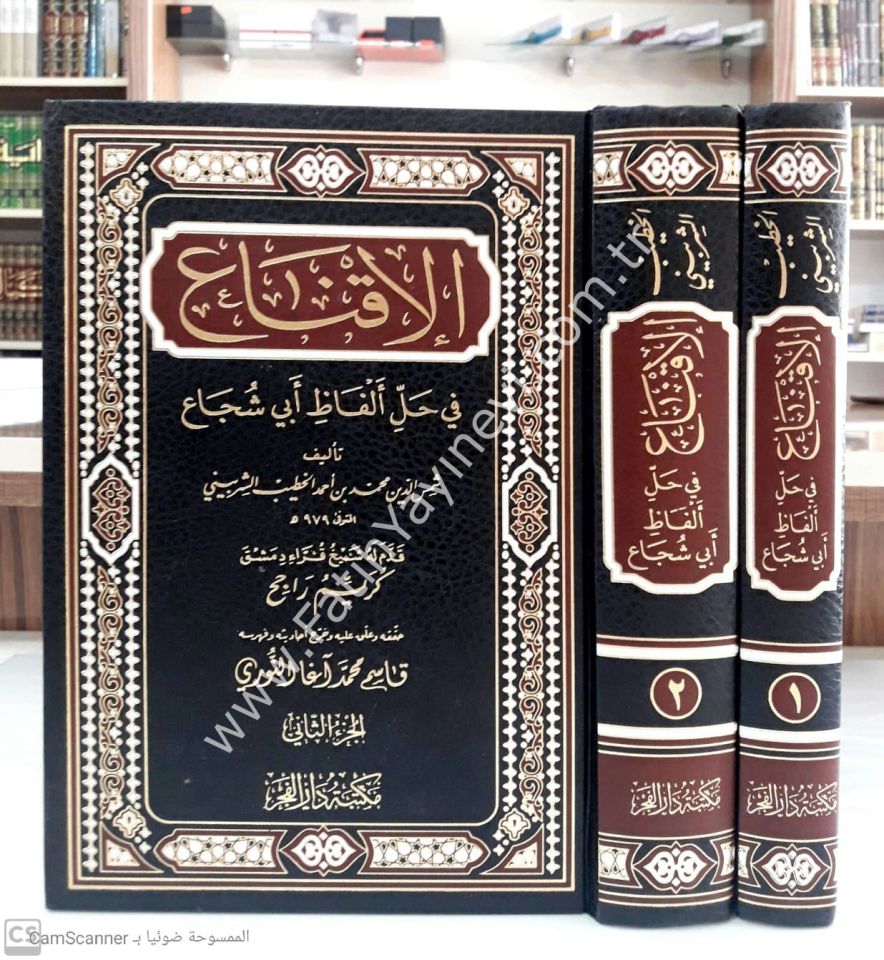 الإقناع
في حَلِّ أَلفَاظِ أَبي شُجَاع
تأليف
شمس الدين محمد بن أحمد الخطيب الشربيني
المتوفى ٩٧٩ هـ
قَدَّمَ لَهُ شَيْخُ قُرَّاءِ دِمَشْقَ
كريِّم رَاجِح
حققه وعلق عليه وخرّج أحاديثه وفهرسه
قاسم محمَّد آغا النُّوري
الجزء الثاني
مكتبة دار الفجر
الخطيب الشربيني
الإقناع
في حَلِّ
أَلفَاظِ
أَبي شُجَاع
٢
مكتبة دار الفجر
الخطيب الشربيني
الإقناع
في حَلِّ
أَلفَاظِ
أَبي شُجَاع
١
مكتبة دار الفجر
www.FatihYayinevi.com.tr
CS CamScanner الممسوحة ضوئيا بـ